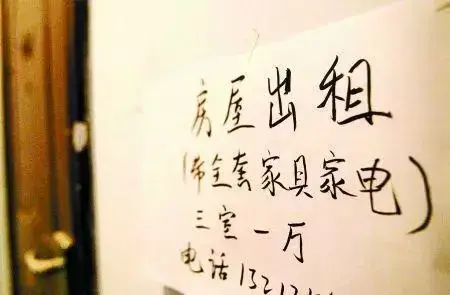 房屋出租
(带全套家具家电)
三室一厅
电话1321